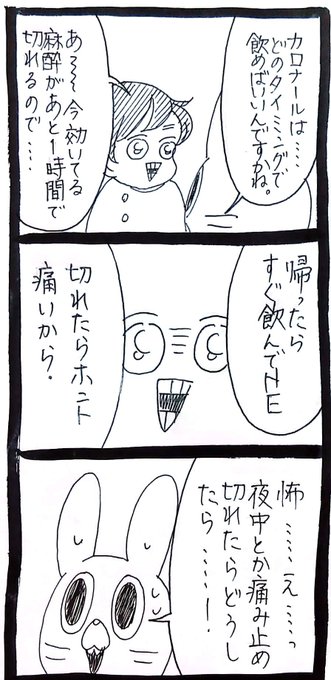 カロナールは……
どのタイミングで
飲めばいいんですかね。
あ〜〜今効いてる
麻酔があと1時間で
切れるので……
帰ったら
すぐ飲んでNE
切れたらホント
痛いから。
怖……ええ……っ
夜中とか痛み止め
切れたらどうし
たら……!